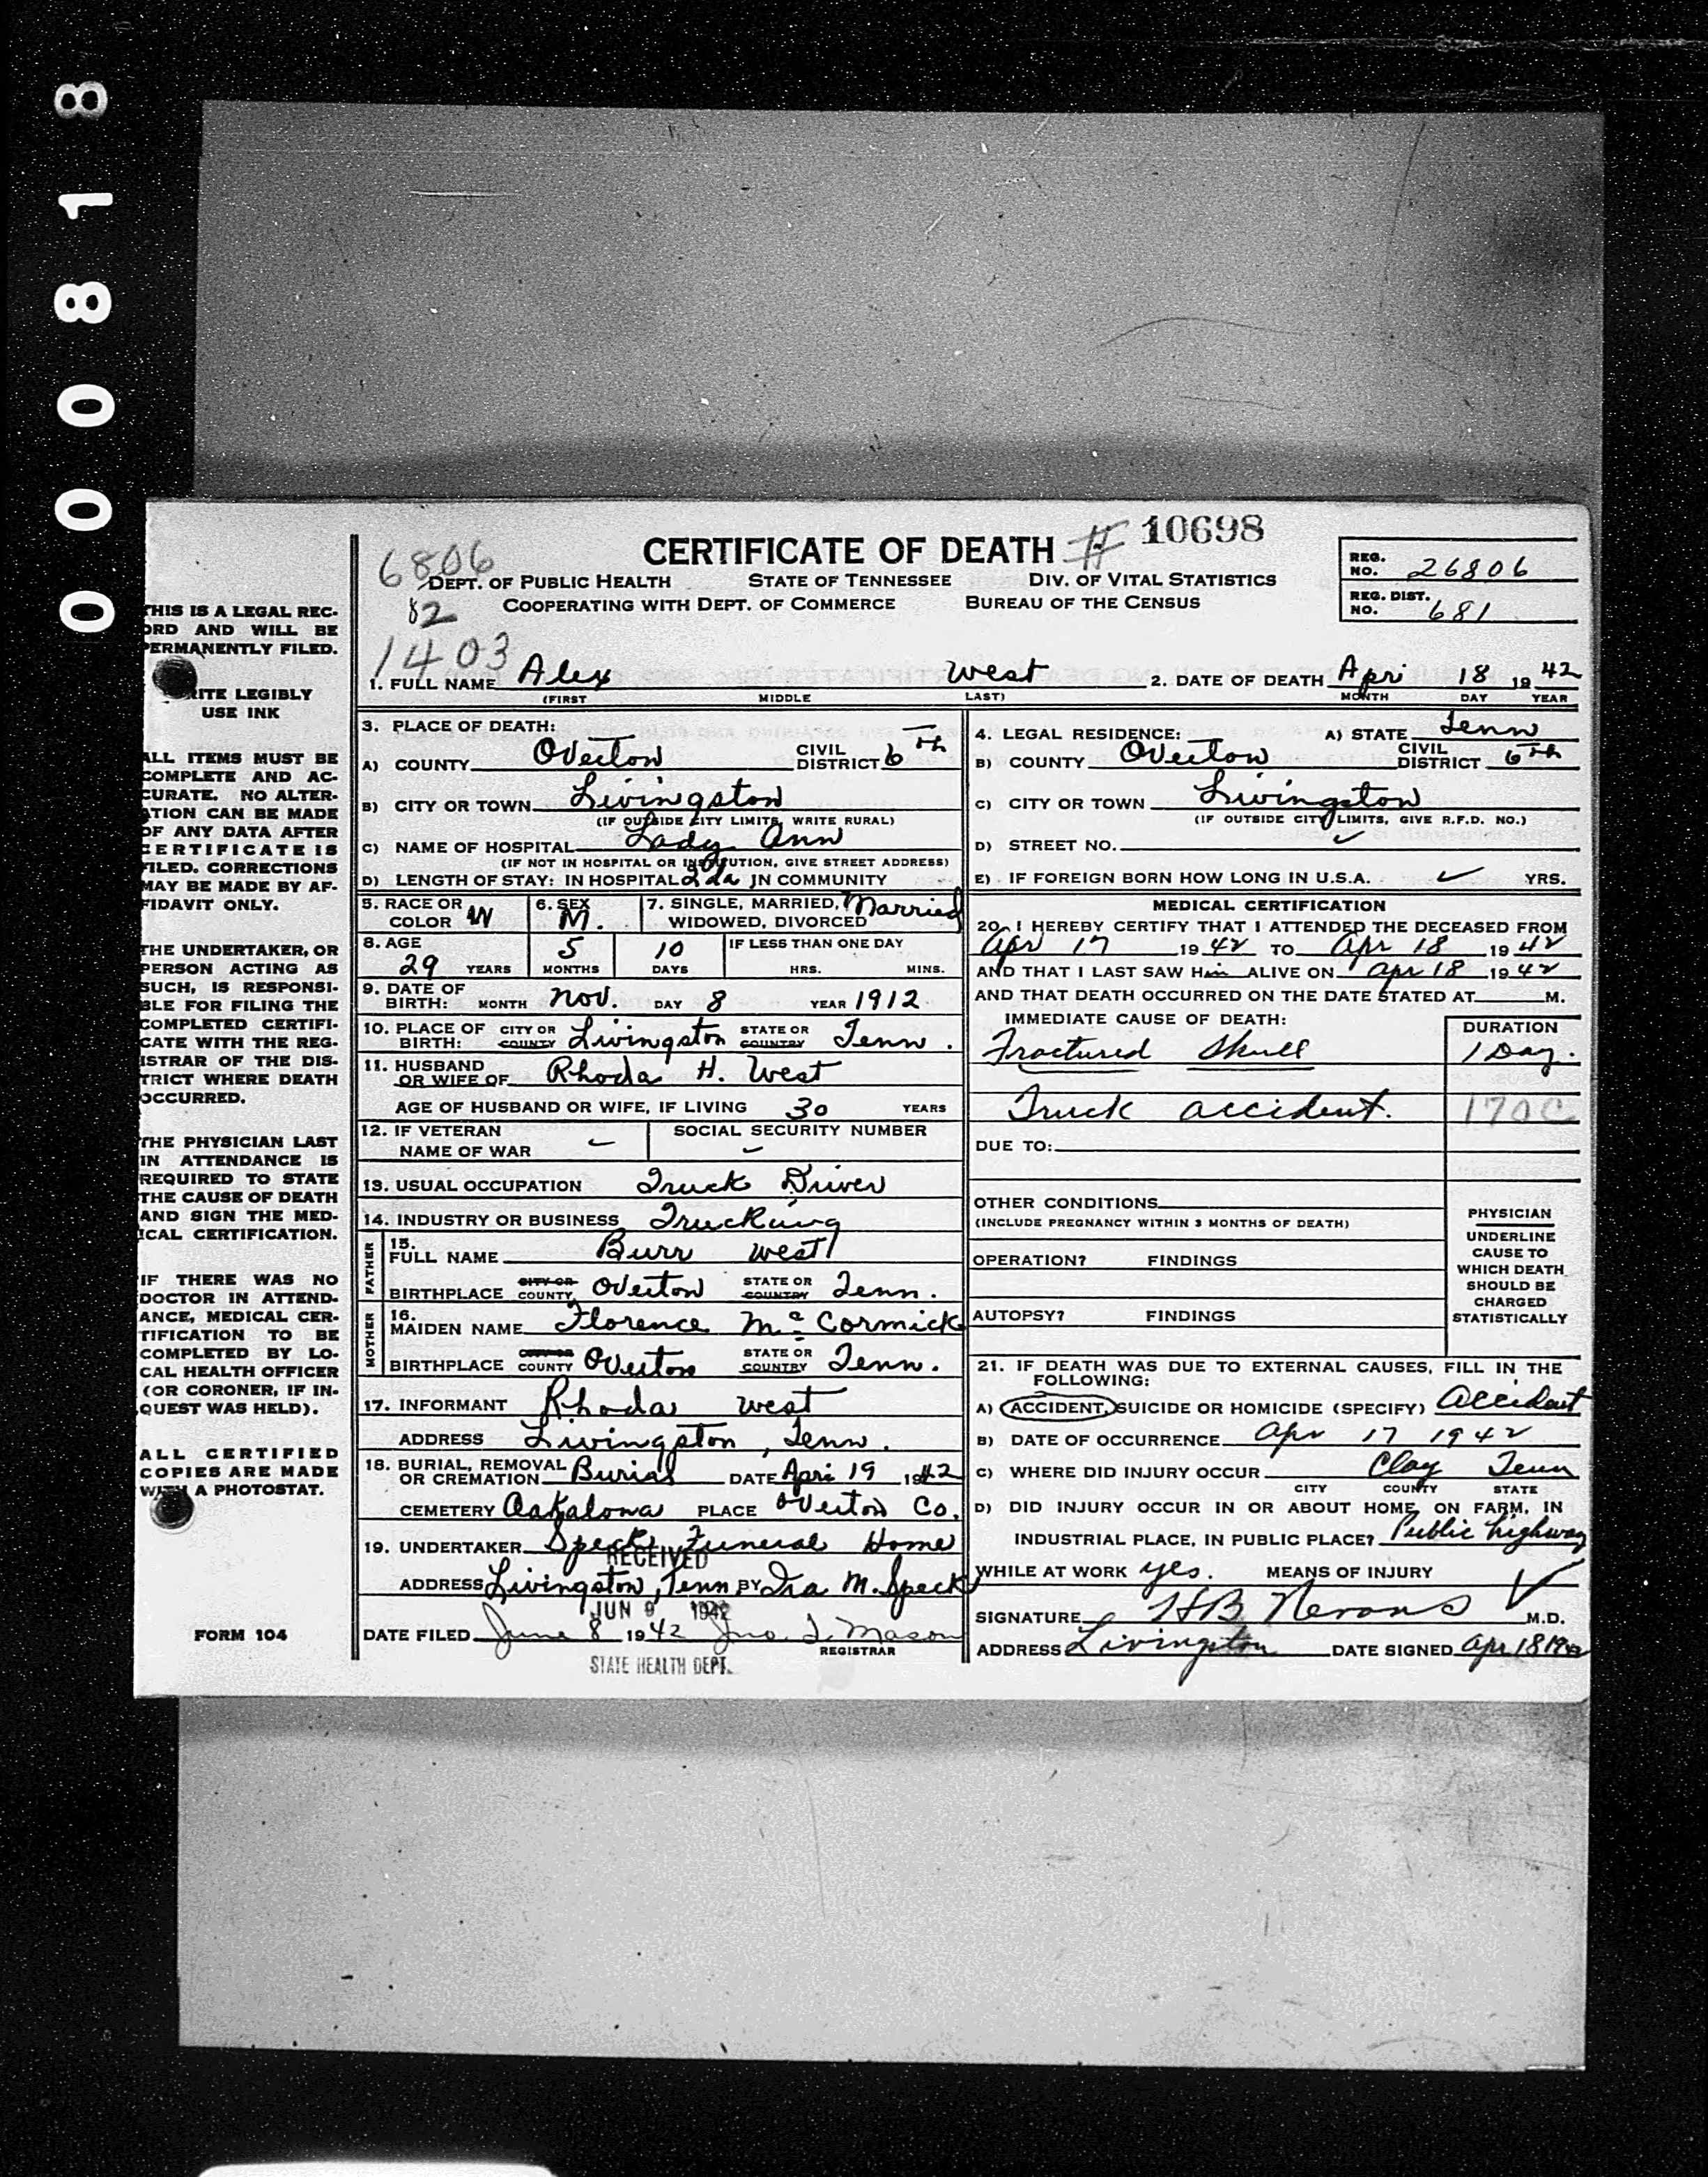 000818
CERTIFICATE OF DEATH # 10698
6806
82
1403
DEPT. OF PUBLIC HEALTH STATE OF TENNESSEE DIV. OF VITAL STATISTICS
COOPERATING WITH DEPT. OF COMMERCE BUREAU OF THE CENSUS
REG. NO. 26806
REG. DIST. NO. 681
THIS IS A LEGAL REC-
ORD AND WILL BE
PERMANENTLY FILED.
RITE LEGIBLY
USE INK
ALL ITEMS MUST BE
COMPLETE AND AC-
CURATE. NO ALTER-
ATION CAN BE MADE
OF ANY DATA AFTER
CERTIFICATE IS
FILED. CORRECTIONS
MAY BE MADE BY AF-
FIDAVIT ONLY.
THE UNDERTAKER, OR
PERSON ACTING AS
SUCH, IS RESPONSI-
BLE FOR FILING THE
COMPLETED CERTIFI-
CATE WITH THE REG-
ISTRAR OF THE DIS-
TRICT WHERE DEATH
OCCURRED.
THE PHYSICIAN LAST
IN ATTENDANCE IS
REQUIRED TO STATE
THE CAUSE OF DEATH
AND SIGN THE MED-
ICAL CERTIFICATION.
IF THERE WAS NO
DOCTOR IN ATTEND-
ANCE, MEDICAL CER-
TIFICATION TO BE
COMPLETED BY LO-
CAL HEALTH OFFICER
(OR CORONER, IF IN-
QUEST WAS HELD).
ALL CERTIFIED
COPIES ARE MADE
WITH A PHOTOSTAT.
FORM 104
1. FULL NAME Alex West 2. DATE OF DEATH Apri 18 1942
(FIRST MIDDLE LAST) MONTH DAY YEAR
3. PLACE OF DEATH:
A) COUNTY Overton CIVIL DISTRICT 6th
B) CITY OR TOWN Livingston
(IF OUTSIDE CITY LIMITS, WRITE RURAL)
C) NAME OF HOSPITAL Lady Ann
(IF NOT IN HOSPITAL OR INSTITUTION, GIVE STREET ADDRESS)
D) LENGTH OF STAY: IN HOSPITAL 2 da IN COMMUNITY
5. RACE OR COLOR W 6. SEX M. 7. SINGLE, MARRIED, WIDOWED, DIVORCED Married
8. AGE 29 YEARS 5 MONTHS 10 DAYS IF LESS THAN ONE DAY HRS. MINS.
9. DATE OF BIRTH: MONTH Nov. DAY 8 YEAR 1912
10. PLACE OF BIRTH: CITY OR COUNTY Livingston STATE OR COUNTRY Tenn.
11. HUSBAND OR WIFE OF Rhoda H. West
AGE OF HUSBAND OR WIFE, IF LIVING 30 YEARS
12. IF VETERAN NAME OF WAR SOCIAL SECURITY NUMBER
13. USUAL OCCUPATION Truck Driver
14. INDUSTRY OR BUSINESS Trucking
FATHER
15. FULL NAME Burr West
BIRTHPLACE CITY OR COUNTY Overton STATE OR COUNTRY Tenn.
MOTHER
16. MAIDEN NAME Florence McCormick
BIRTHPLACE CITY OR COUNTY Overton STATE OR COUNTRY Tenn.
17. INFORMANT Rhoda West
ADDRESS Livingston, Tenn.
18. BURIAL, REMOVAL OR CREMATION Burial DATE Apri 19 1942
CEMETERY Oakalona PLACE Overton Co.
19. UNDERTAKER Speck Funeral Home
ADDRESS Livingston, Tenn. BY Ira M. Speck
RECEIVED
JUN 9 1942
STATE HEALTH DEPT.
DATE FILED June 8 1942 Jno. T. Mason
REGISTRAR
4. LEGAL RESIDENCE: A) STATE Tenn
B) COUNTY Overton CIVIL DISTRICT 6th
C) CITY OR TOWN Livingston
(IF OUTSIDE CITY LIMITS, GIVE R.F.D. NO.)
D) STREET NO. ✓
E) IF FOREIGN BORN HOW LONG IN U.S.A. ✓ YRS.
MEDICAL CERTIFICATION
20. I HEREBY CERTIFY THAT I ATTENDED THE DECEASED FROM
Apr 17 1942 TO Apr 18 1942
AND THAT I LAST SAW Him ALIVE ON Apr 18 1942
AND THAT DEATH OCCURRED ON THE DATE STATED AT M.
IMMEDIATE CAUSE OF DEATH: DURATION
Fractured Skull 1 Day.
Truck accident. 170C
DUE TO:
OTHER CONDITIONS
(INCLUDE PREGNANCY WITHIN 3 MONTHS OF DEATH)
OPERATION? FINDINGS
AUTOPSY? FINDINGS
PHYSICIAN
UNDERLINE
CAUSE TO
WHICH DEATH
SHOULD BE
CHARGED
STATISTICALLY
21. IF DEATH WAS DUE TO EXTERNAL CAUSES, FILL IN THE
FOLLOWING:
A) ACCIDENT, SUICIDE OR HOMICIDE (SPECIFY) Accident
B) DATE OF OCCURRENCE Apr 17 1942
C) WHERE DID INJURY OCCUR Clay Tenn
CITY COUNTY STATE
D) DID INJURY OCCUR IN OR ABOUT HOME, ON FARM, IN
INDUSTRIAL PLACE, IN PUBLIC PLACE? Public highway
WHILE AT WORK yes. MEANS OF INJURY ✓
SIGNATURE HB Nevans M.D.
ADDRESS Livingston DATE SIGNED Apr 18 1942